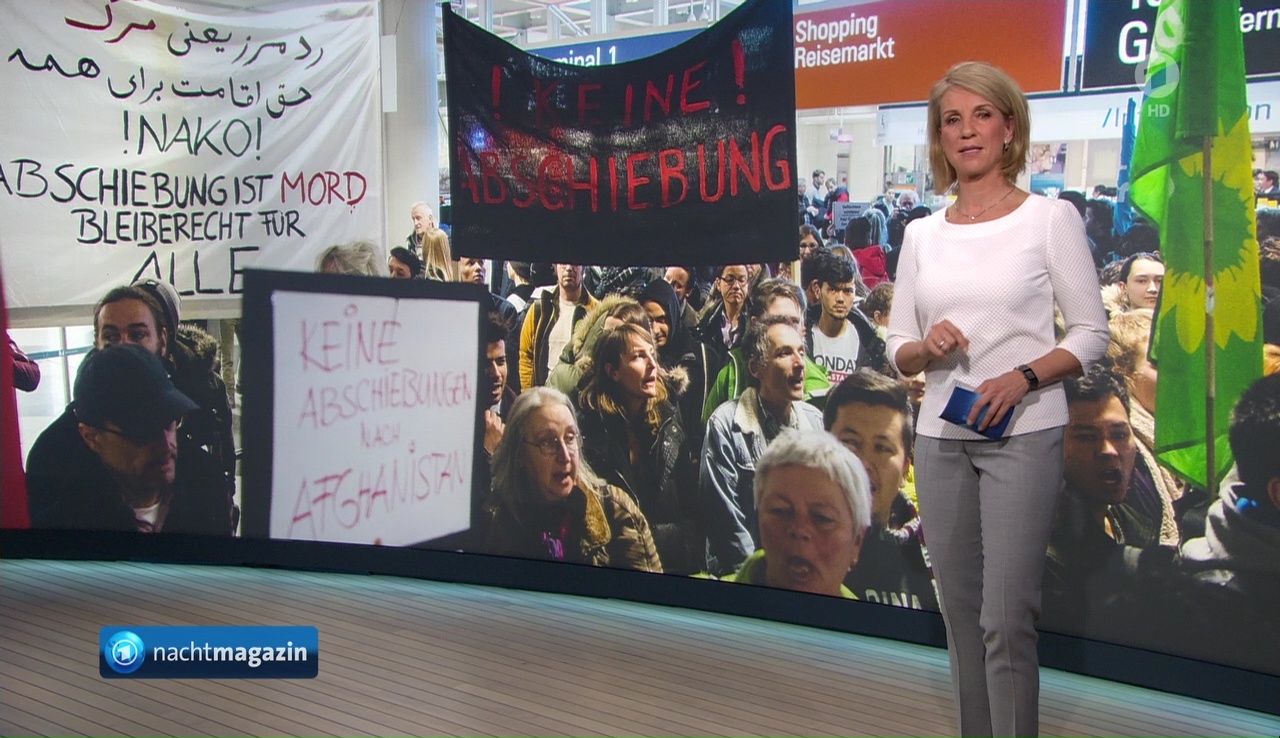 رد مرز یعنی مرگ
حق اقامت برای همه
!NAKO!
ABSCHIEBUNG IST MORD
BLEIBERECHT FÜR
ALLE
minal 1
! KEINE !
ABSCHIEBUNG
Shopping
Reisemarkt
G
HD
KEINE
ABSCHIEBUNGEN
NACH
AFGHANISTAN
ONDA
nachtmagazin